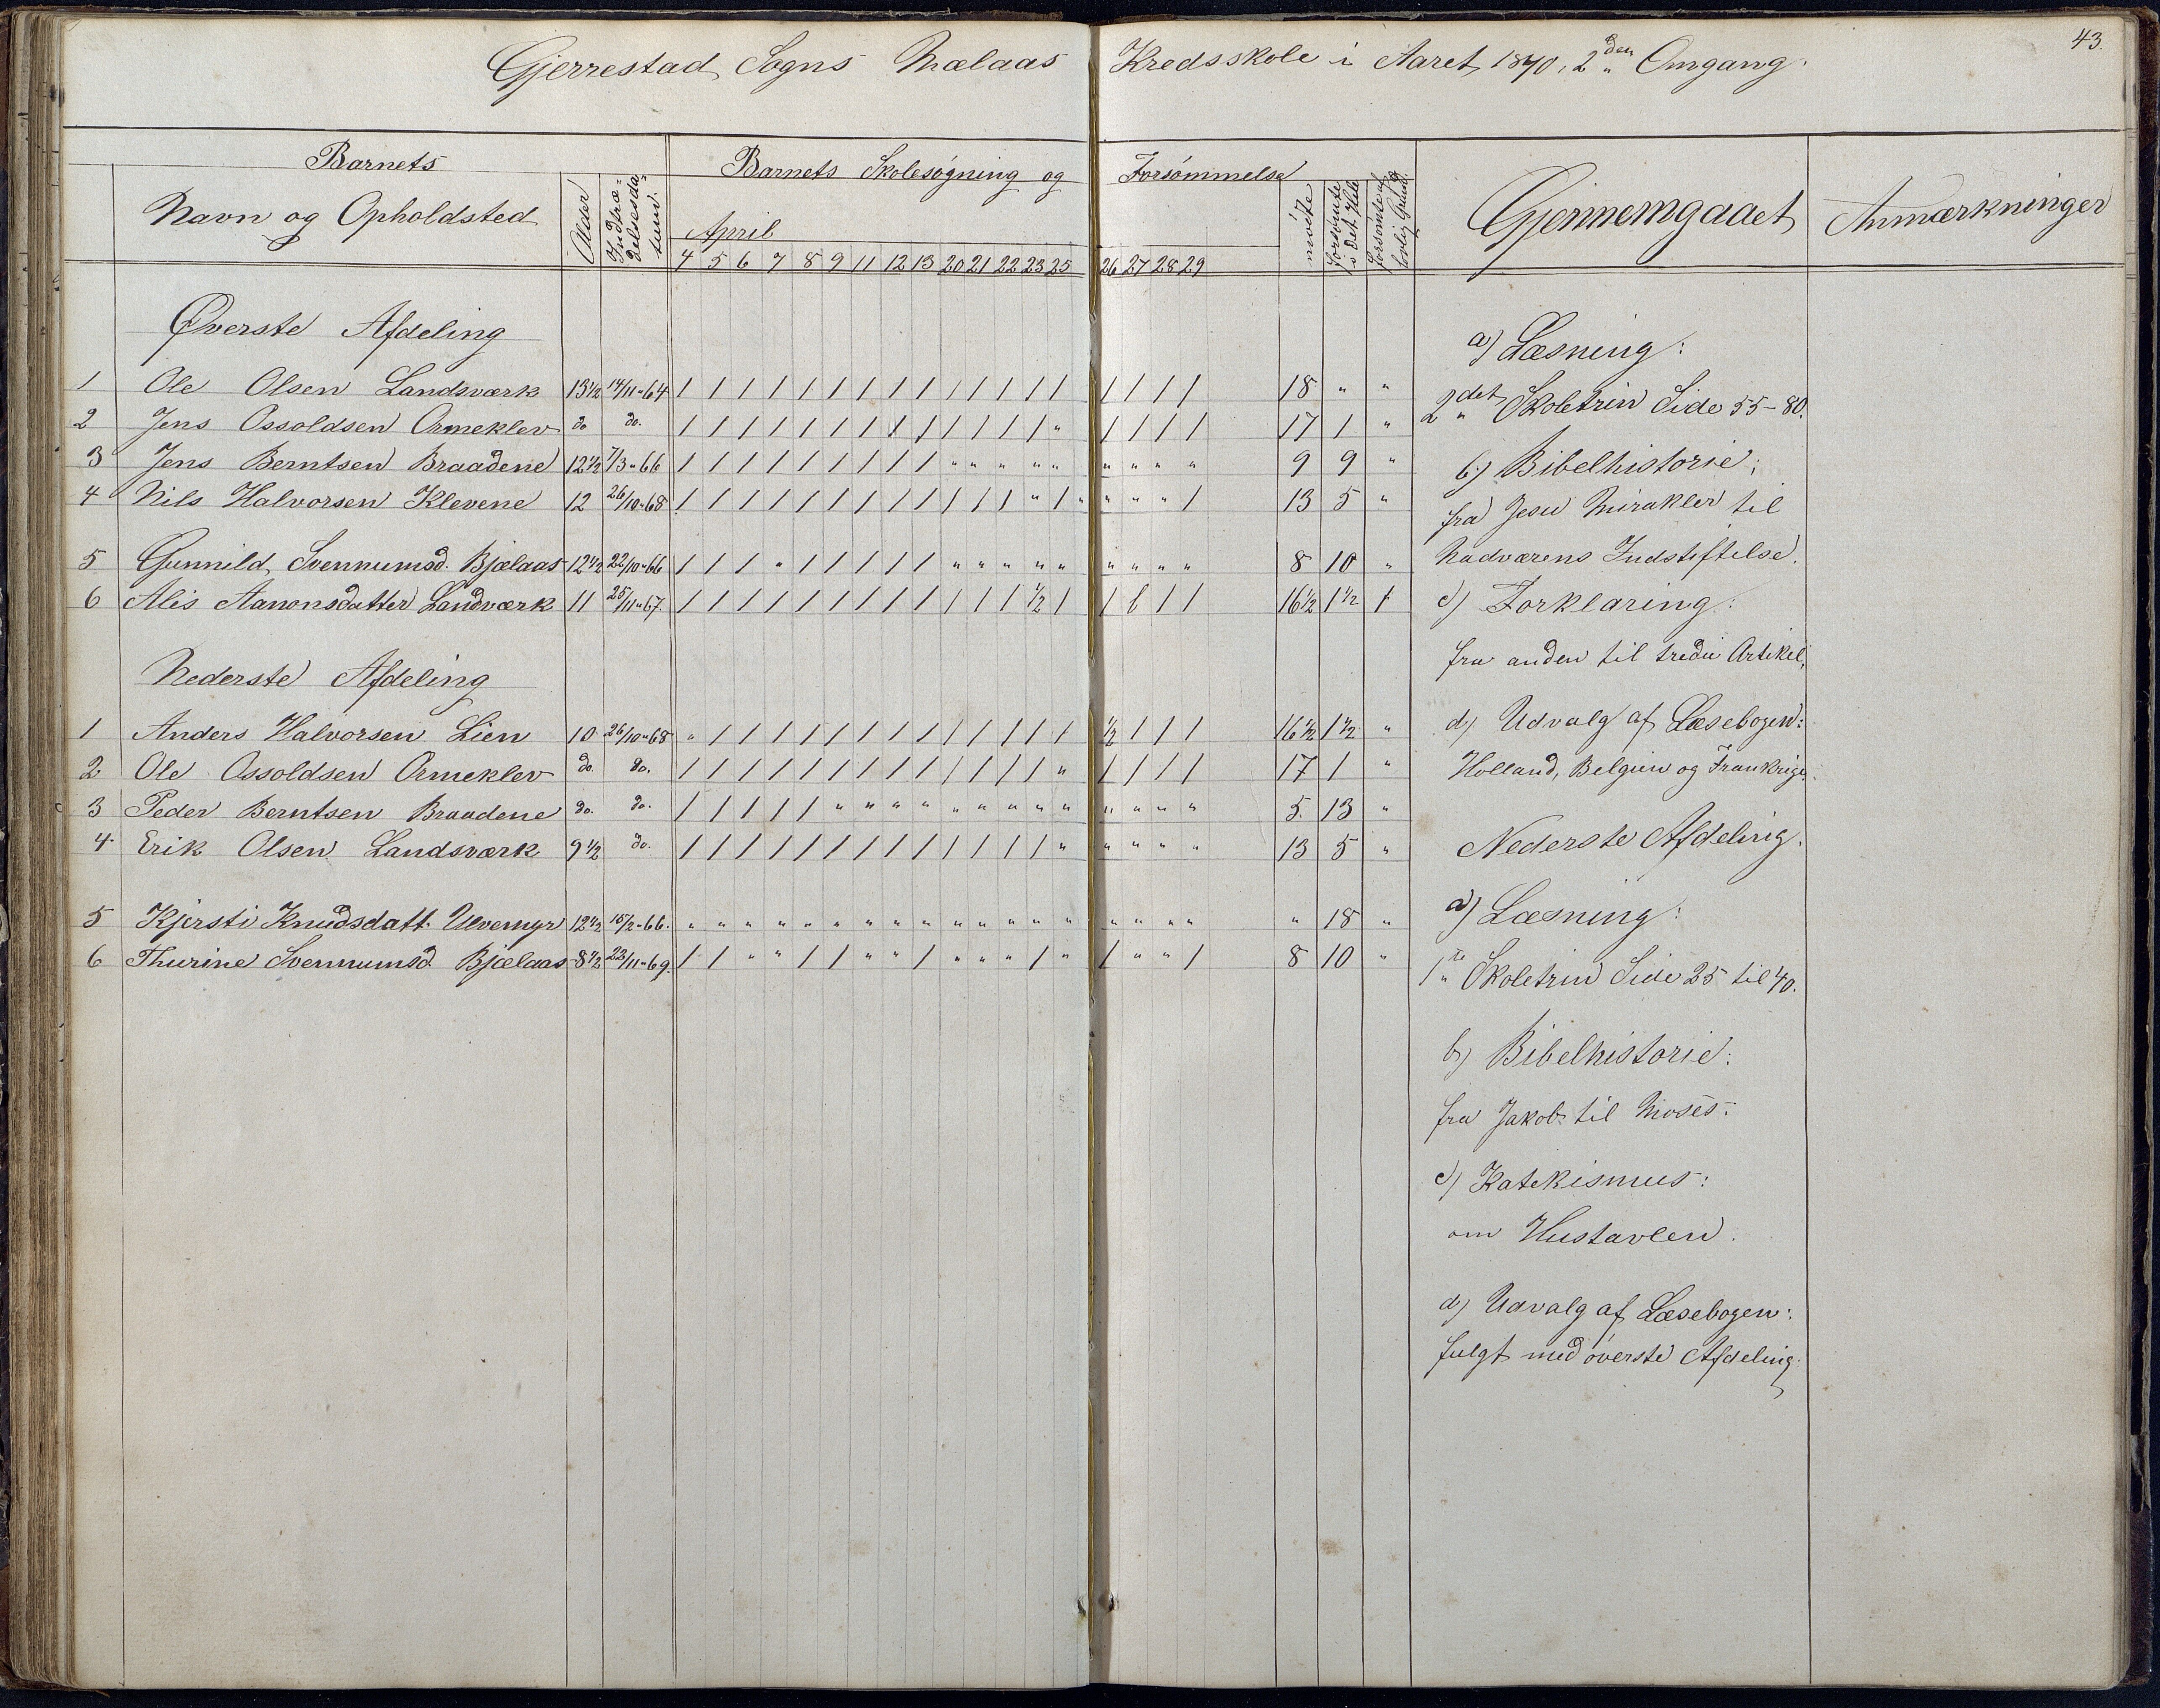 43.
Gjerrestad Sogns Mælaas Kredsskole i Aaret 1870, 2den Omgang.
Barnets Barnets Skolesøgning og Forsømmelse
Navn og Opholdsted Alder Indtrædelsesdatum. April mødte forsømte i det Hele forsømte af lovlig Grund. Gjennemgaaet Anmærkninger
4 5 6 7 8 9 11 12 13 20 21 22 23 25 26 27 28 29
Øverste Afdeling
1 Ole Olsen Landsværk 13½ 14/11-64 / / / / / / / / / / / / / / / / / / 18 " "
2 Jens Ossoldsen Ormeklev do do. / / / / / / / / / / / / / " / / / / 17 1 "
3 Jens Berntsen Braadene 12½ 7/3-66 / / / / / / / / / " " " " " " " " " 9 9 "
4 Nils Halvorsen Klevene 12 26/10-68 / / / / / / / / / / / / " / " " " / 13 5 "
5 Gunnild Svennumsd. Bjælaas 12½ 22/10-66 / / / " / / / / / " " " " " " " " " 8 10 "
6 Alis Aanonsdatter Landværk 11 25/11-67. / / / / / / / / / / / / ½ / / l / / 16½ 1½ 1
Nederste Afdeling
1 Anders Halvorsen Lien 10 26/10-68 " / / / / / / / / / / / / / ½ / / / 16½ 1½ "
2 Ole Ossoldsen Ormeklev do. do. / / / / / / / / / / / / / " / / / / 17 1 "
3 Peder Berntsen Braadene do. do. / / / / / " " " " " " " " " " " " " 5. 13 "
4 Erik Olsen Landsværk 9½ do. / / / / / / / / / / / / / " " " " " 13 5 "
5 Kjersti Knudsdatt. Ulvemyr 12½ 15/2-66. " " " " " " " " " " " " " " " " " " " 18 "
6 Thurine Svennumsd. Bjælaas 8½ 22/11-69. / / " " / / " " / " " " / " / " " / 8 10 "
a) Læsning:
2det Skoletrin Side 55-80.
b) Bibelhistorie;
fra Jesu Mirakler til
Nadværens Indstiftelse.
c) Forklaring:
fra anden til tredie Artikel,
d) Udvalg af Læsebogen:
Holland, Belgien og Frankrige.
Nederste Afdeling.
a) Læsning:
1te Skoletrin Side 25 til 40.
b) Bibelhistorie:
fra Jakob til Moses.
c) Katekismus:
om Hustavlen.
d) Udvalg af Læsebogen:
fulgt med øverste Afdeling.